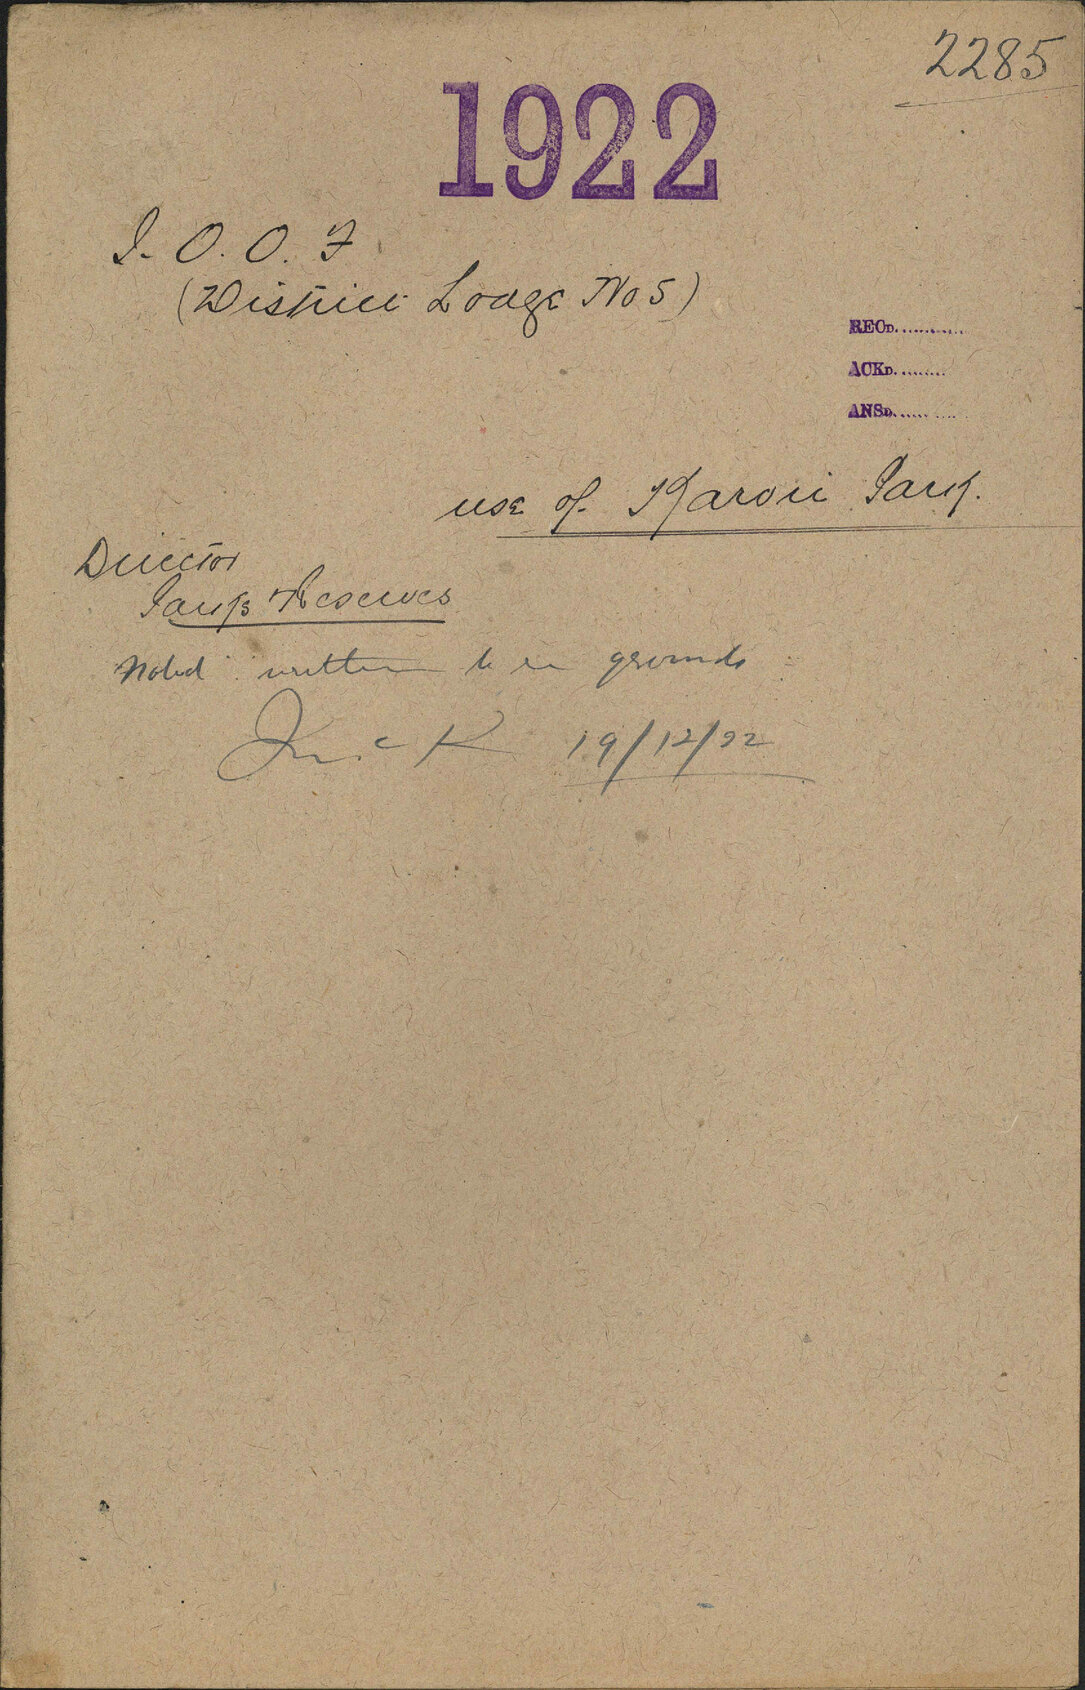 2285
1922
I. O. O. F
(District Lodge No 5)
RECD.............
ACKD.........
ANSD.............
use of Karori Park.
Director
Parks & Reserves
Noted written to re grounds
McK 19/12/22